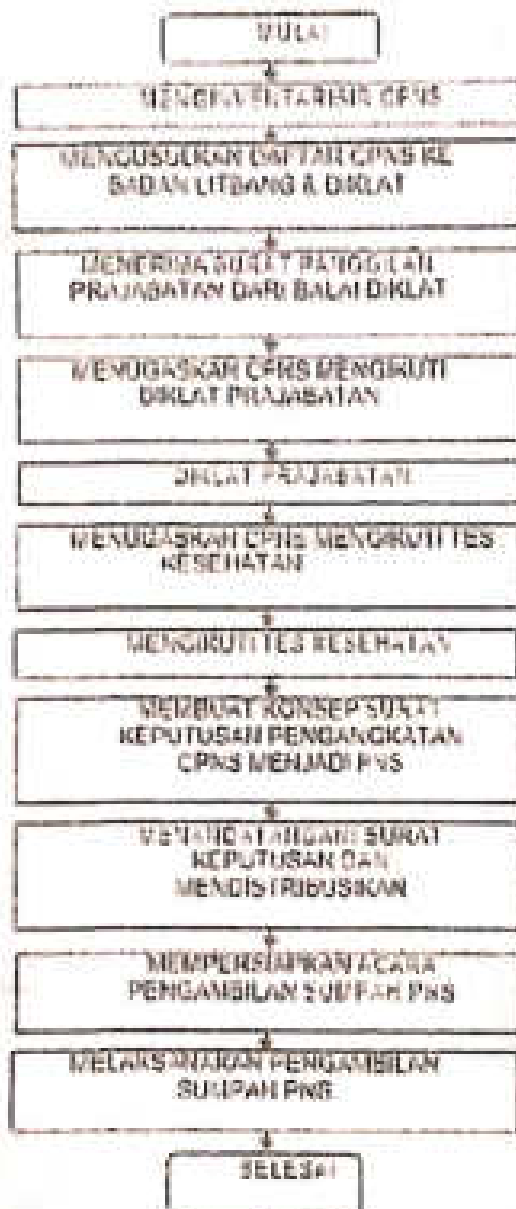 MULAI
MENGINVENTARISIR CPNS
MENGUSULKAN DAFTAR CPNS KE
BADAN LITBANG & DIKLAT
MENERIMA SURAT PANGGILAN
PRAJABATAN DARI BALAI DIKLAT
MENUGASKAN CPNS MENGIKUTI
DIKLAT PRAJABATAN
DIKLAT PRAJABATAN
MENUGASKAN CPNS MENGIKUTI TES
KESEHATAN
MENGIKUTI TES KESEHATAN
MEMBUAT KONSEP SURAT
KEPUTUSAN PENGANGKATAN
CPNS MENJADI PNS
MENANDATANGANI SURAT
KEPUTUSAN DAN
MENDISTRIBUSIKAN
MEMPERSIAPKAN ACARA
PENGAMBILAN SUMPAH PNS
MELAKSANAKAN PENGAMBILAN
SUMPAH PNS
SELESAI